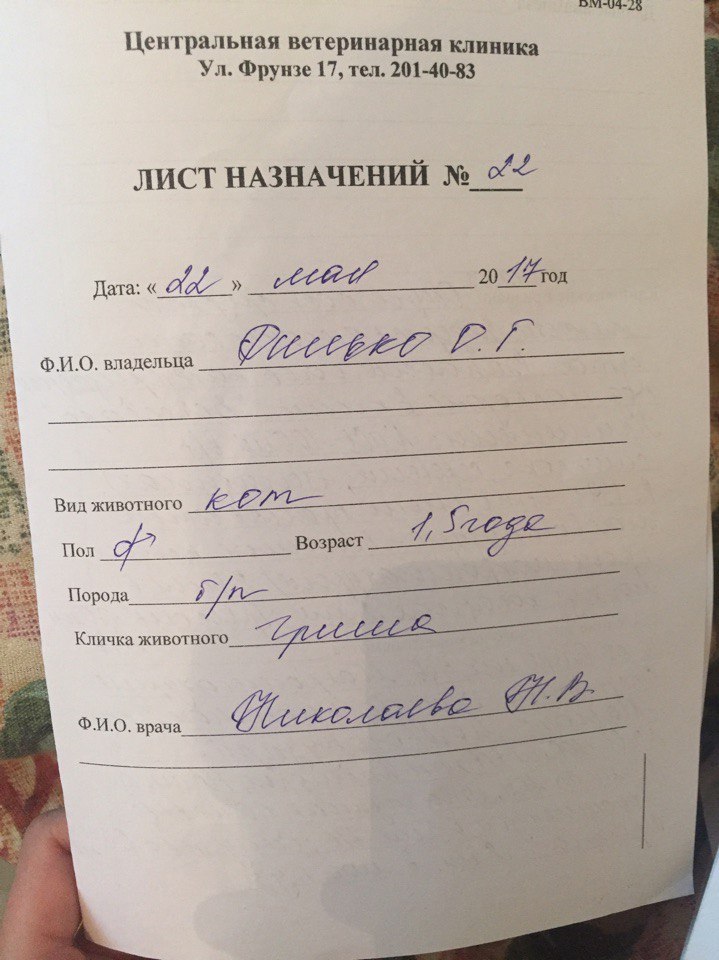 ВМ-04-28
Центральная ветеринарная клиника
Ул. Фрунзе 17, тел. 201-40-83
ЛИСТ НАЗНАЧЕНИЙ № 22
Дата: «22» мая 2017 год
Ф.И.О. владельца О. Г.
Вид животного кот
Пол ♂ Возраст 1,5 года
Порода б/п
Кличка животного Гриша
Ф.И.О. врача Николаева Н. В.